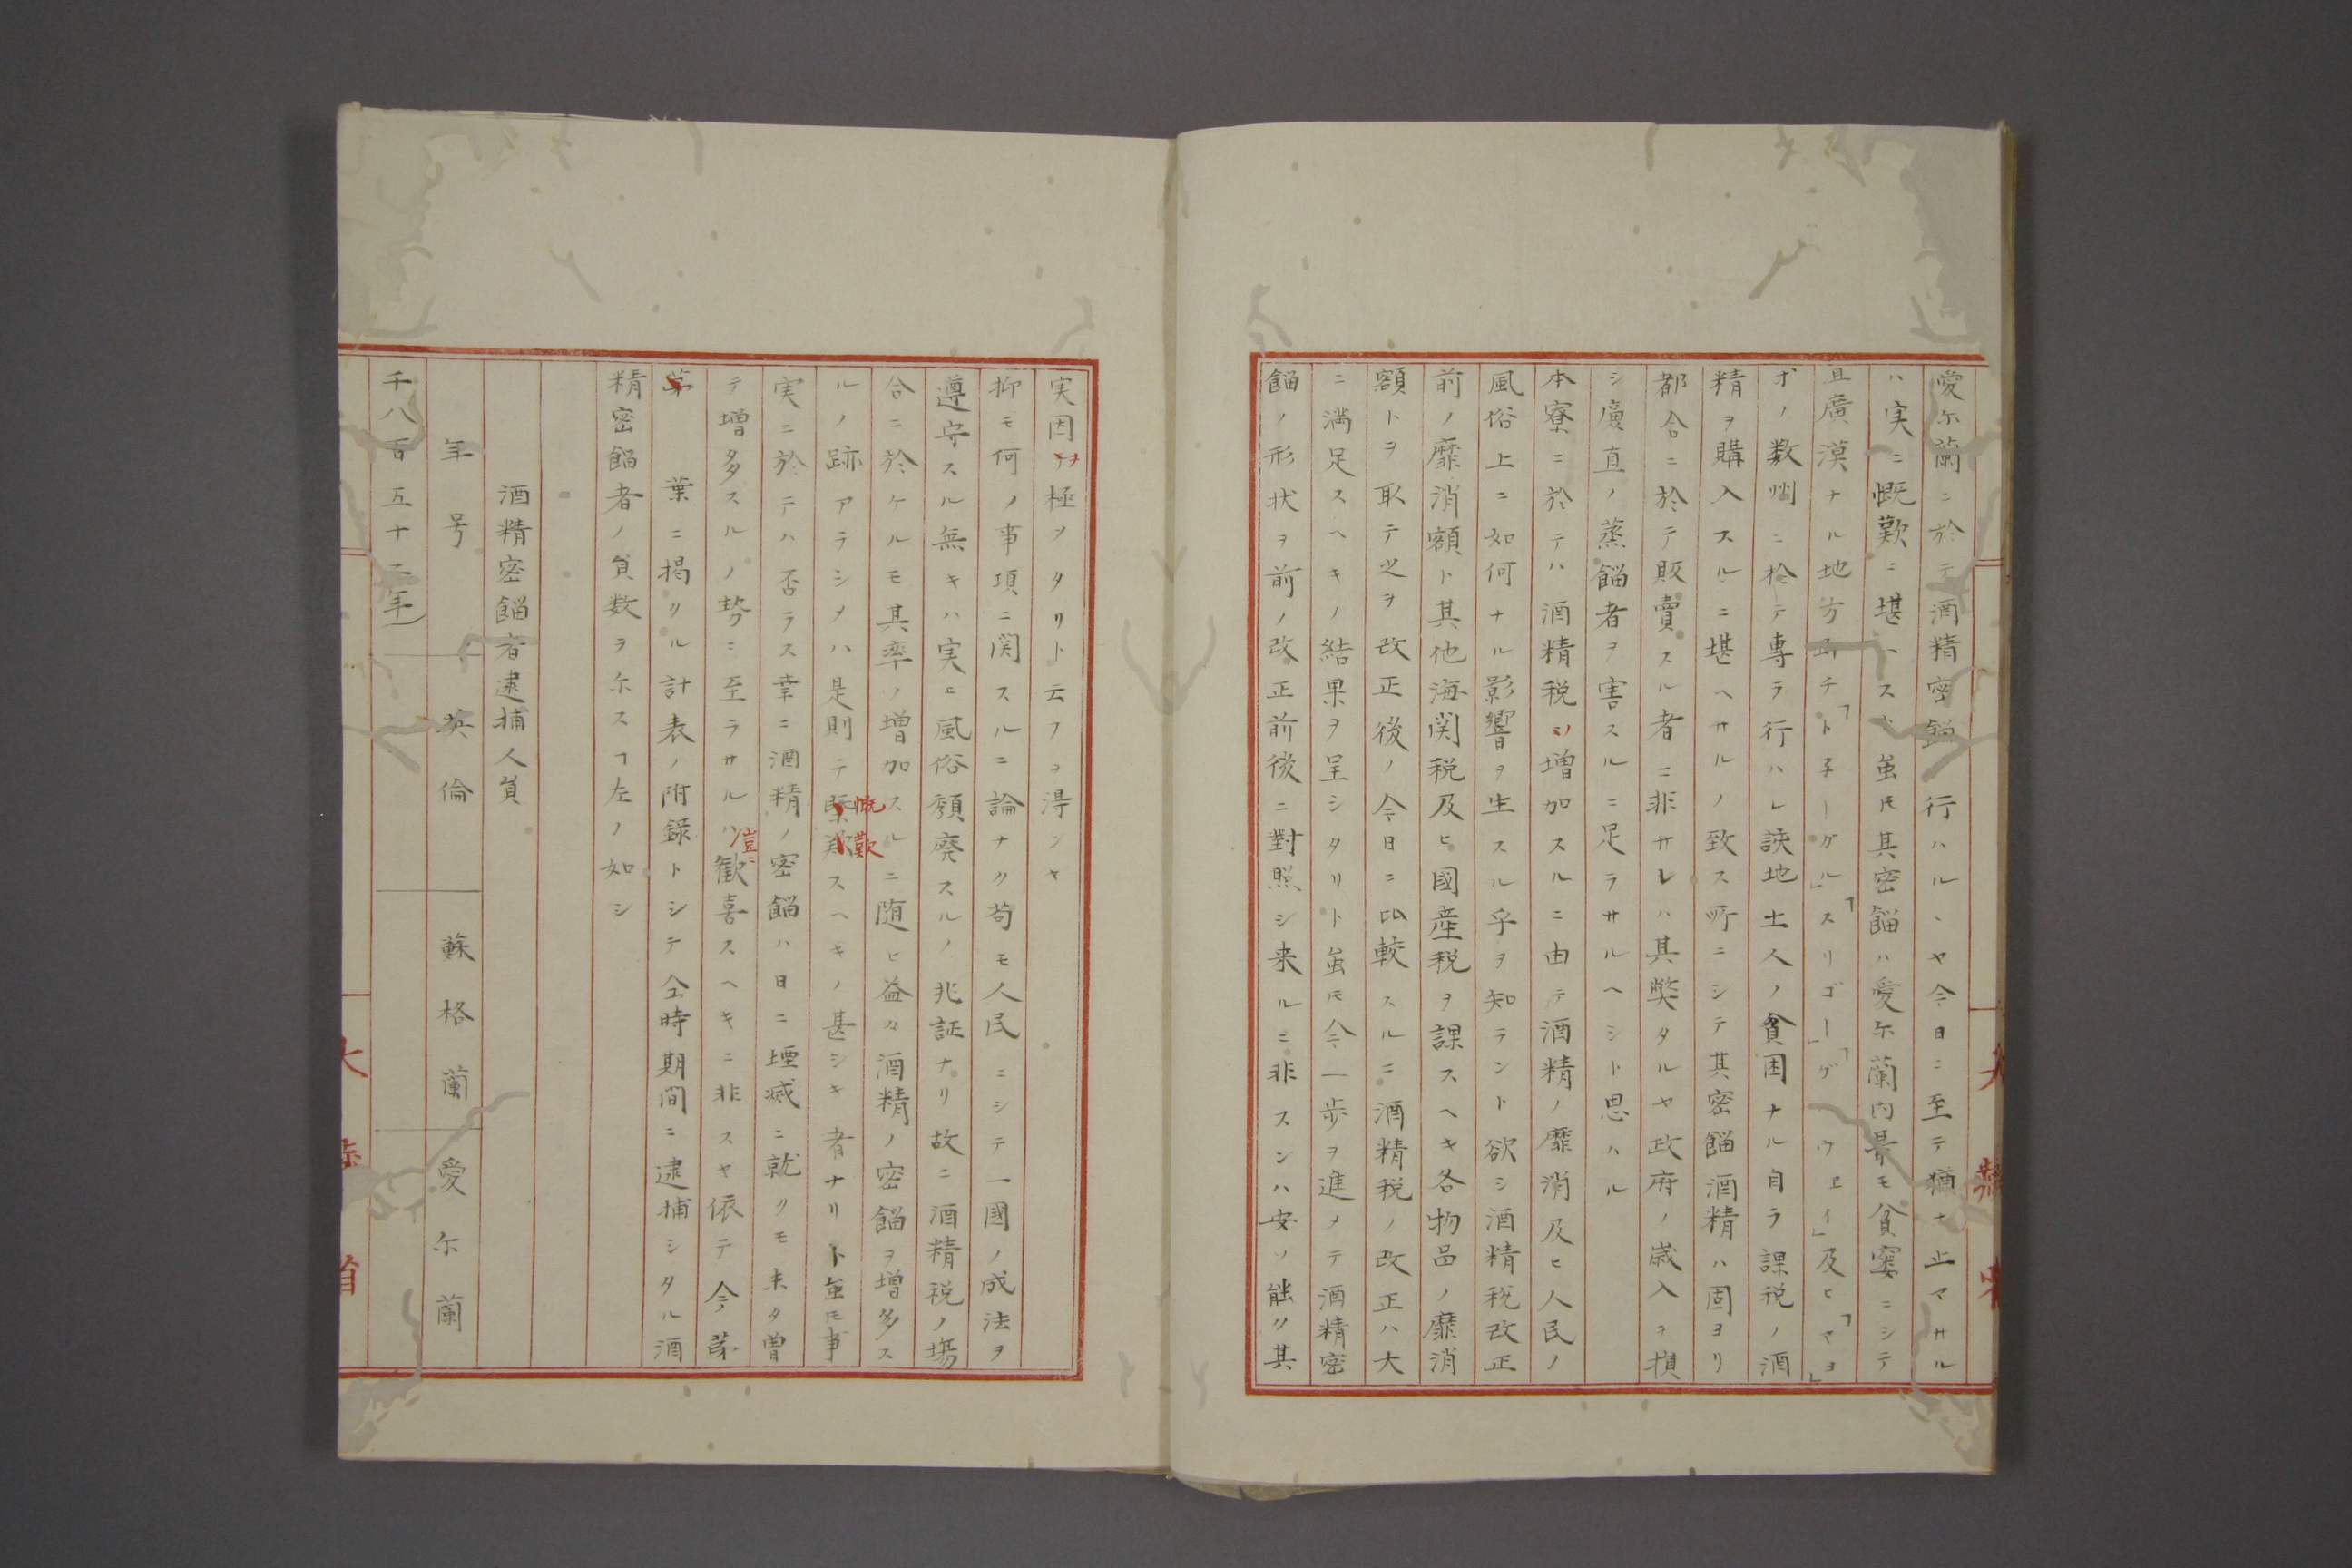 愛尓蘭ニ於テ酒精密餾行ハル丶ヤ今日ニ至テ猶ホ止マサル
ハ実ニ慨歎ニ堪ヘス然虽𪜈其密餾ハ愛尓蘭内最モ貧窶ニシテ
且廣漠ナル地方即チ「ト子ーゲル」「スリゴー」「ゲウヱイ」及ヒ「マヨ」
オノ数州ニ於テ専ラ行ハレ該地土人ノ貧困ナル自ラ課税ノ酒
精ヲ購入スルニ堪ヘサルノ致ス所ニシテ其密餾酒精ハ固ヨリ
都合ニ於テ販賣スル者ニ非サレハ其弊タルヤ政府ノ歳入ヲ損
シ廉直ノ蒸餾者ヲ害スルニ足ラサルヘシト思ハル
本寮ニ於テハ酒精税ノ増加スルニ由テ酒精ノ靡消及ヒ人民ノ
風俗上ニ如何ナル影響ヲ生スル乎ヲ知ラント欲シ酒精税改正
前ノ靡消額ト其他海関税及ヒ國産税ヲ課スヘキ各物品ノ靡消
額トヲ取テ之ヲ改正後ノ今日ニ比較スルニ酒精税ノ改正ハ大
ニ満足スヘキノ結果ヲ呈シタリト虽𪜈今一歩ヲ進メテ酒精密
餾ノ形状ヲ前ノ改正前後ニ對照シ来ルニ非スンハ安ソ能ク其
実因ヲ極ヲタリト云フヲ得ンヤ
抑モ何ノ事項ニ関スルニ論ナク苟モ人民ニシテ一國ノ成法ヲ
遵守スル無キハ実ニ風俗頽廃スルノ兆証ナリ故ニ酒精税ノ塲
合ニ於ケルモ其率ノ増加スルニ随ヒ益々酒精ノ密餾ヲ増多ス
ルノ跡アラシメハ是則テ慨歎スヘキノ甚シキ者ナリト虽𪜈事
実ニ於テハ否ラス幸ニ酒精ノ密餾ハ日ニ堙滅ニ就クモ未タ曽
テ増多スルノ勢ニ至ラサルハ豈ニ歓喜スヘキニ非スヤ依テ今第
葉ニ掲クル計表ノ附録トシテ仝時期間ニ逮捕シタル酒
精密餾者ノ負数ヲ示スヿ左ノ如シ
酒精密餾者逮捕人負
年号 英倫 蘇格蘭 愛尓蘭
千八百五十二年